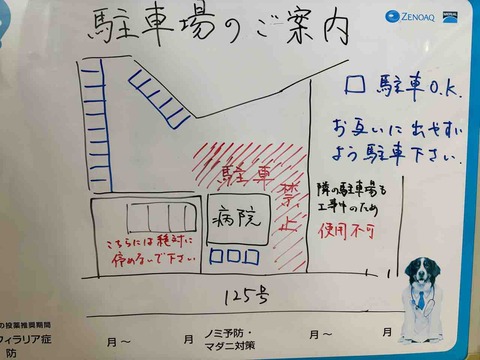 ZENOAQ
駐車場のご案内
駐車O.K.
お互いに出やすい
よう駐車下さい。
駐車
禁止
病院
隣の駐車場も
工事中のため
使用不可
こちらには絶対に
停めないで下さい
125号
の投薬推奨期間
フィラリア症
防
月~
月
ノミ予防・
マダニ対策
月~
月